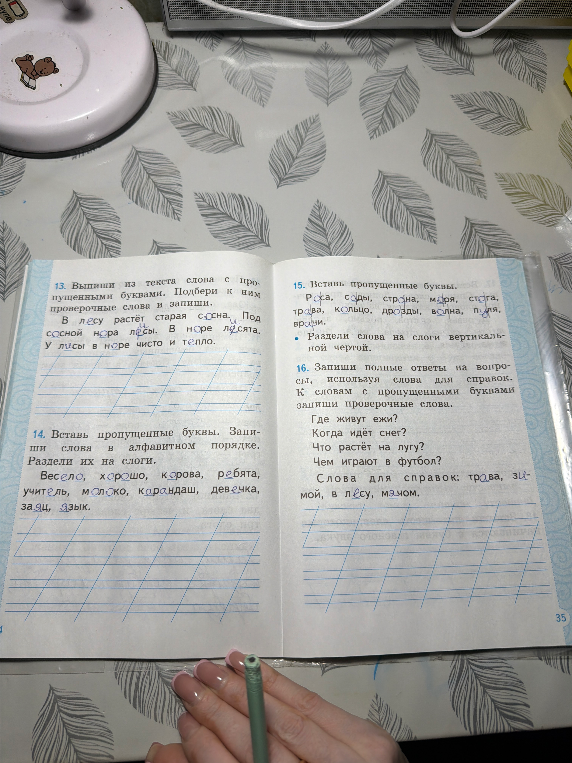 13. Выпиши из текста слова с про-
пущенными буквами. Подбери к ним
проверочные слова и запиши.
В лесу растёт старая сосна. Под
сосной нора лисы. В норе лисята.
У лисы в норе чисто и тепло.
14. Вставь пропущенные буквы. Запи-
ши слова в алфавитном порядке.
Раздели их на слоги.
Весело, хорошо, корова, ребята,
учитель, молоко, карандаш, девечка,
заяц, язык.
15. Вставь пропущенные буквы.
Роса, соды, строна, моря,
трава, кольцо, дрозды, волна,
• Раздели слова на слоги вертикаль-
ной чертой.
16. Запиши полные ответы на вопро-
сы, используя слова для справок.
К словам с пропущенными буквами
запиши проверочные слова.
Где живут ежи?
Когда идёт снег?
Что растёт на лугу?
Чем играют в футбол?
Слова для справок: трава, зи-
мой, в лесу, мячом.
35